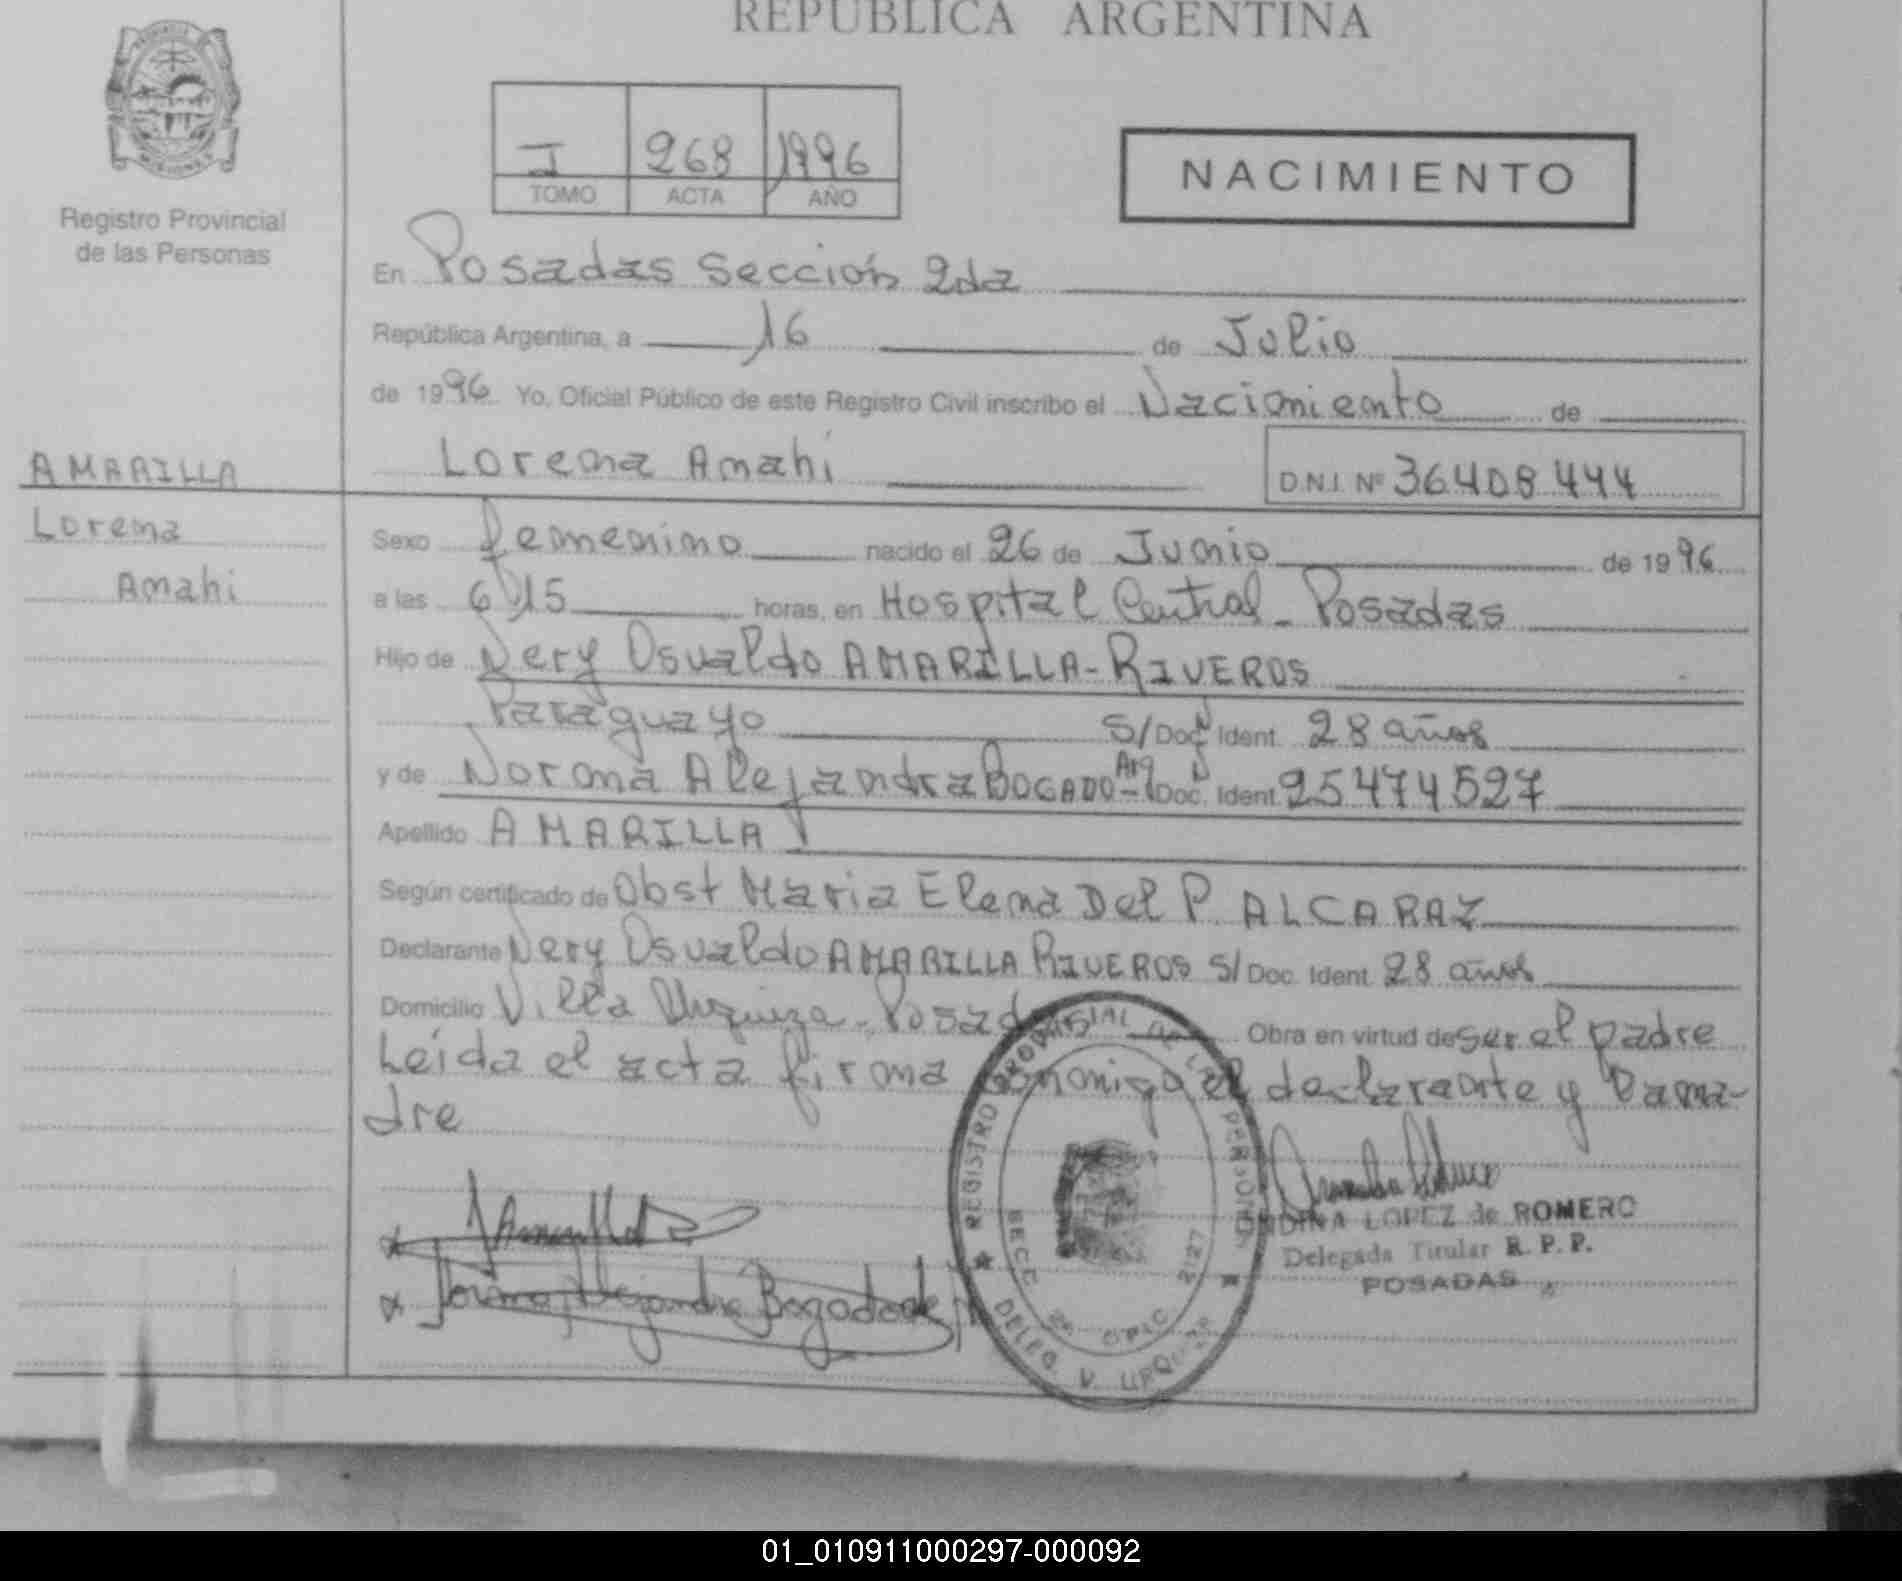 REPUBLICA ARGENTINA
I 268 1996
TOMO ACTA AÑO
NACIMIENTO
Registro Provincial
de las Personas
En Posadas Sección 2da
República Argentina, a 16 de Julio
de 1996 Yo, Oficial Público de este Registro Civil inscribo el Nacimiento de
Lorena Anahi D.N.I. Nº 36.408.444
AMARILLA
Lorena
Anahi
Sexo femenino nacido el 26 de Junio de 1996
a las 6,15 horas, en Hospital Central - Posadas
Hijo de Nery Osvaldo AMARILLA-RIVEROS
Paraguayo S/ Doc. Ident. 28 años
y de Norma Alejandra BOGADO - Arg Doc. Ident. 25.474.527
Apellido AMARILLA
Según certificado de Obst Maria Elena Del P. ALCARAZ
Declarante Nery Osvaldo AMARILLA RIVEROS S/ Doc. Ident. 28 años
Domicilio Villa Urquiza - Posadas Obra en virtud de ser el padre
Leída el acta firma conmigo el declarante y la ma-
dre
REGISTRO PROVINCIAL DE LAS PERSONAS
DELEG. V. URQUIZA
SECC. 2a OFIC. 2127
Norma Alejandra Bogado de
LOPEZ de ROMERO
Delegada Titular R. P. P.
POSADAS
01_010911000297-000092